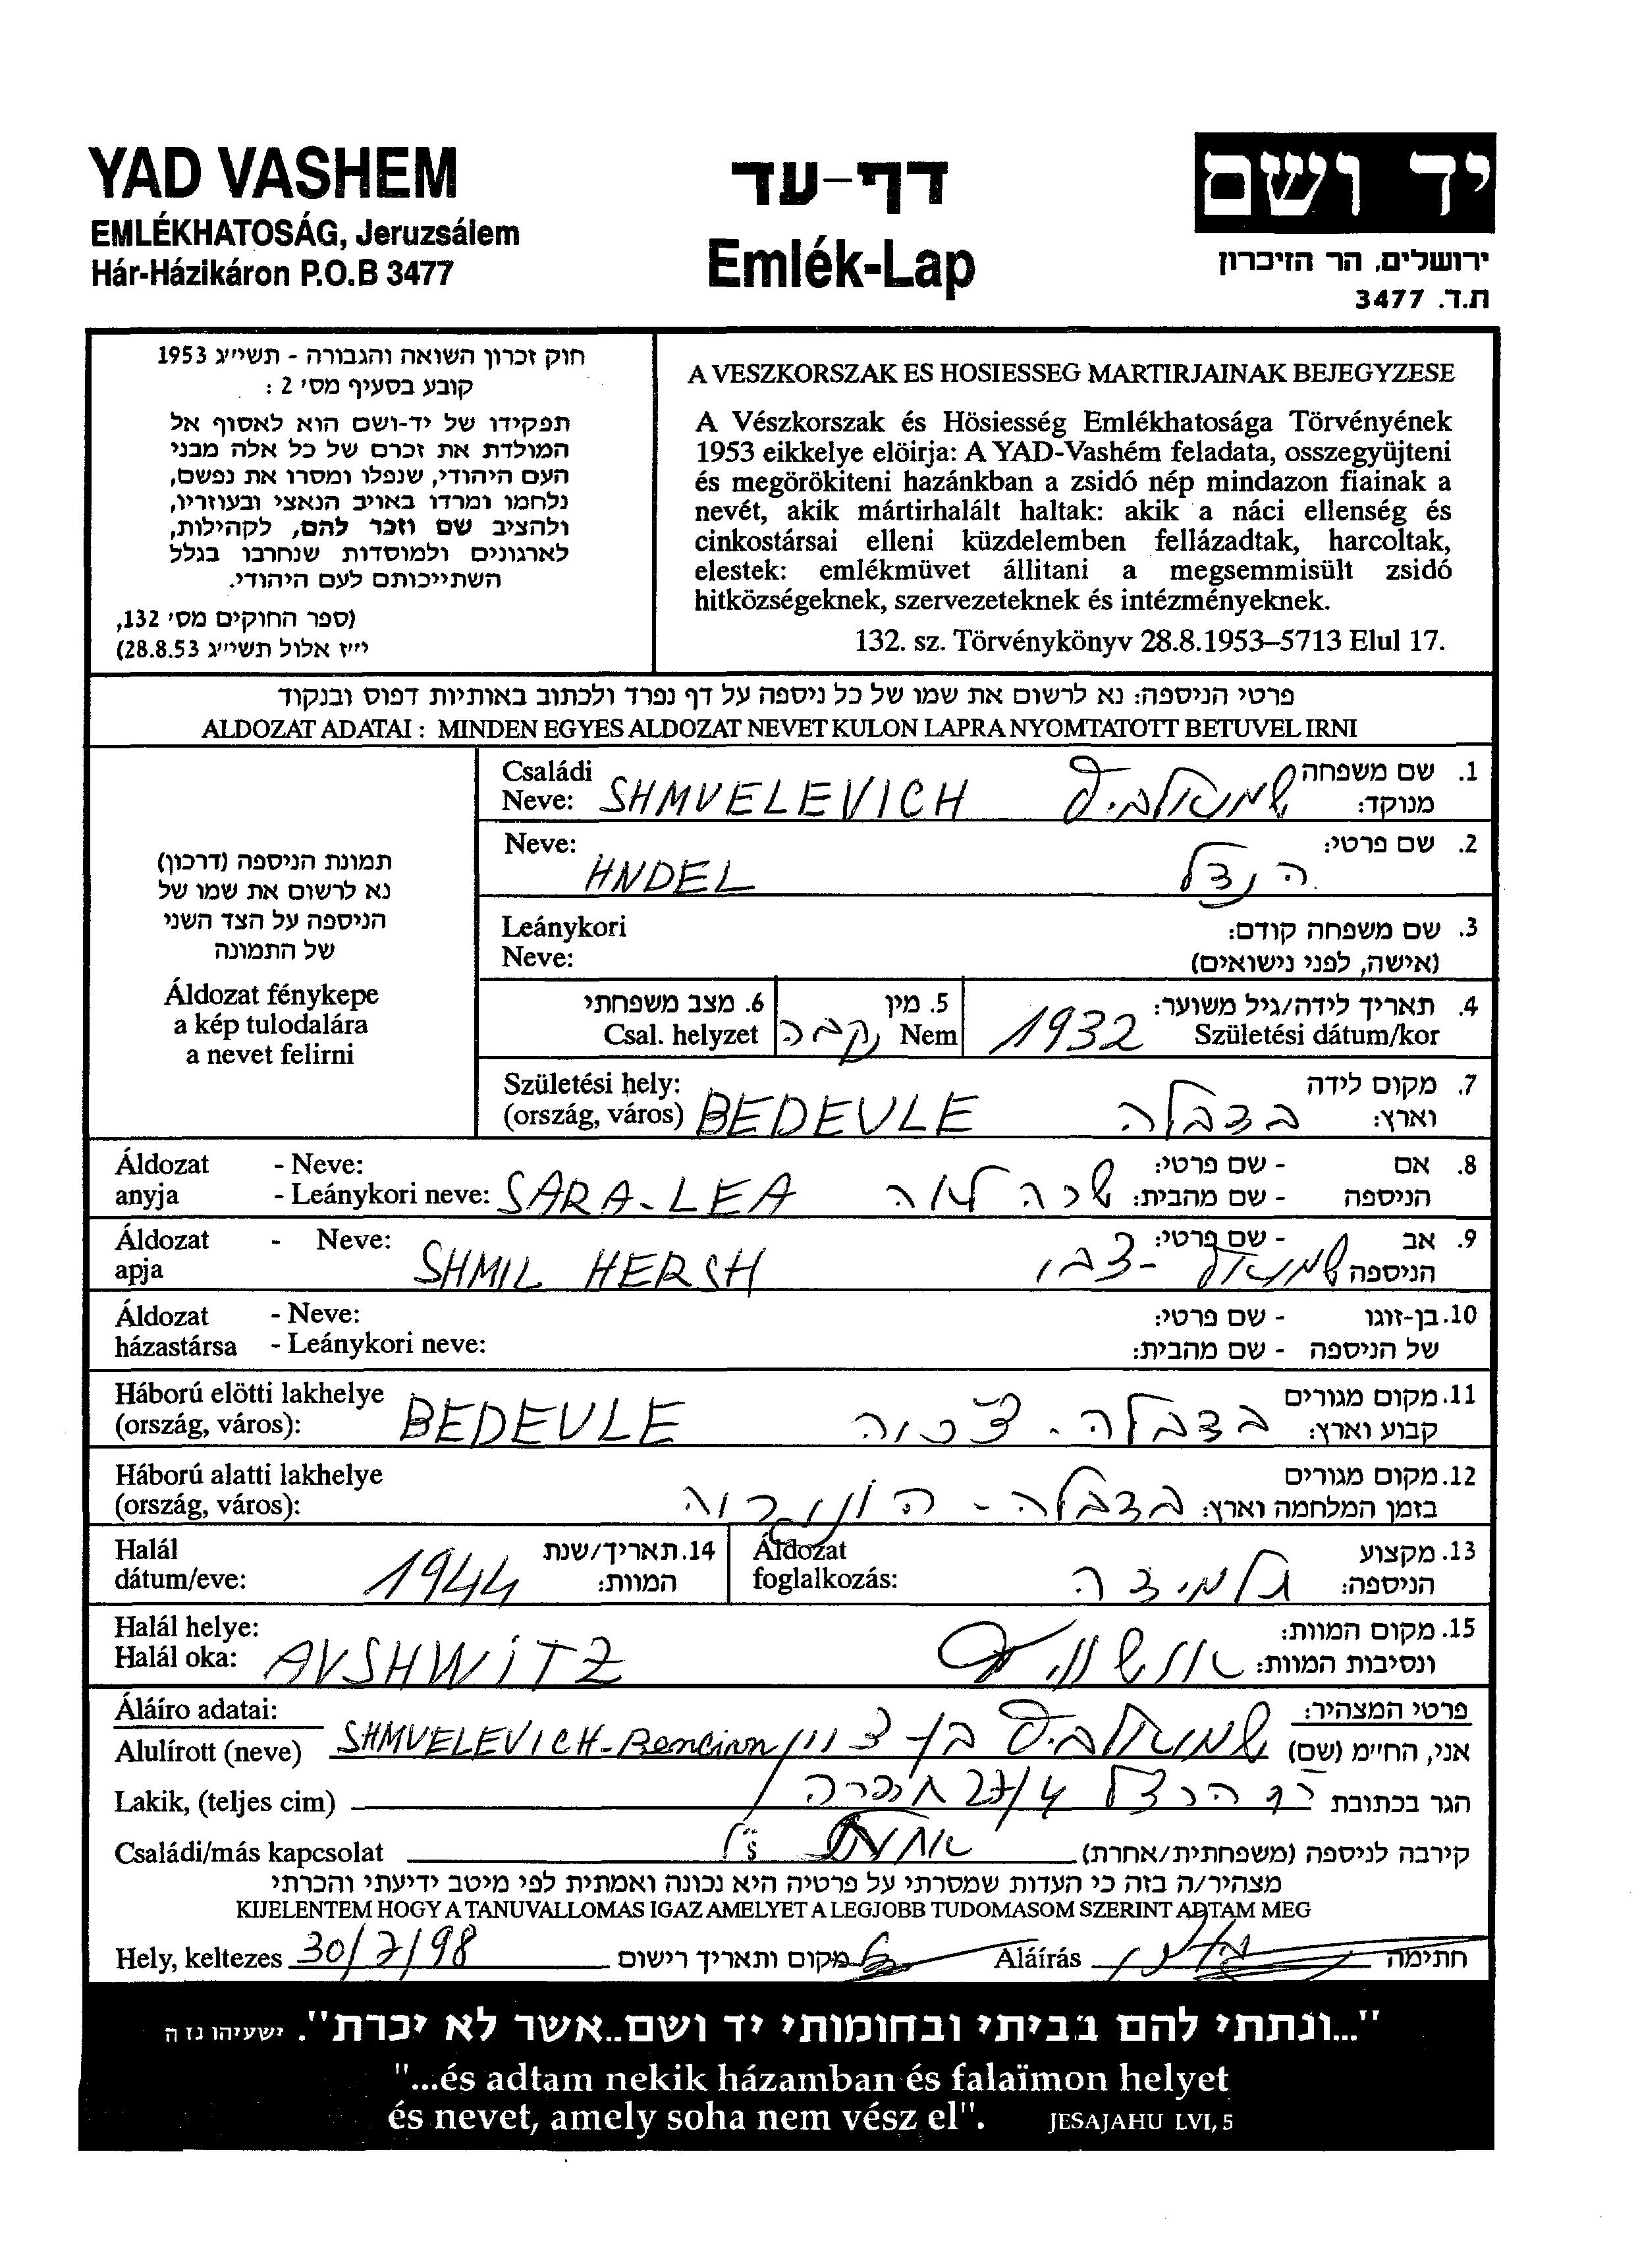 YAD VASHEM
EMLÉKHATOSÁG, Jeruzsálem
Hár-Házikáron P.O.B 3477
דף-עד
Emlék-Lap
יד ושם
ירושלים, הר הזיכרון
ת.ד. 3477
חוק זכרון השואה והגבורה - תשי״ג 1953
קובע בסעיף מס׳ 2 :
תפקידו של יד-ושם הוא לאסוף אל
המולדת את זכרם של כל אלה מבני
העם היהודי, שנפלו ומסרו את נפשם,
נלחמו ומרדו באויב הנאצי ובעוזריו,
ולהציב שם וזכר להם, לקהילות,
לארגונים ולמוסדות שנחרבו בגלל
השתייכותם לעם היהודי.
(ספר החוקים מס׳ 132,
י״ז אלול תשי״ג 28.8.53)
A VESZKORSZAK ES HOSIESSEG MARTIRJAINAK BEJEGYZESE
A Vészkorszak és Hösiesség Emlékhatosága Törvényének
1953 eikkelye elöirja: A YAD-Vashém feladata, osszegyüjteni
és megörökiteni hazánkban a zsidó nép mindazon fiainak a
nevét, akik mártirhalált haltak: akik a náci ellenség és
cinkostársai elleni küzdelemben fellázadtak, harcoltak,
elestek: emlékmüvet állitani a megsemmisült zsidó
hitközségeknek, szervezeteknek és intézményeknek.
132. sz. Törvénykönyv 28.8.1953–5713 Elul 17.
פרטי הניספה: נא לרשום את שמו של כל ניספה על דף נפרד ולכתוב באותיות דפוס ובנקוד
ALDOZAT ADATAI : MINDEN EGYES ALDOZAT NEVET KULON LAPRA NYOMTATOTT BETUVEL IRNI
תמונת הניספה (דרכון)
נא לרשום את שמו של
הניספה על הצד השני
של התמונה
Áldozat fénykepe
a kép tulodalára
a nevet felirni
Családi
Neve: SHMUELEVICH שמואלביץ
1. שם משפחה
מנוקד:
Neve: HNDEL הנדל
2. שם פרטי:
Leánykori
Neve:
3. שם משפחה קודם:
(אישה, לפני נישואים)
4. תאריך לידה/גיל משוער:
Születési dátum/kor 1932
5. מין
Nem נקבה
6. מצב משפחתי
Csal. helyzet
Születési hely:
(ország, város) BEDEVLE בדבלה
7. מקום לידה
וארץ:
Áldozat - Neve:
anyja - Leánykori neve: SARA-LEA שרה לאה
8. אם - שם פרטי:
הניספה - שם מהבית:
Áldozat - Neve:
apja SHMIL HERSH שמואל-צבי
9. אב - שם פרטי:
הניספה
Áldozat - Neve:
házastársa - Leánykori neve:
10. בן-זוגו - שם פרטי:
של הניספה - שם מהבית:
Háború elötti lakhelye
(ország, város): BEDEVLE בדבלה - צ׳כיה
11. מקום מגורים
קבוע וארץ:
Háború alatti lakhelye
(ország, város): בדבלה - הונגריה
12. מקום מגורים
בזמן המלחמה וארץ:
Halál
dátum/eve: 1944
14. תאריך/שנת
המוות:
Áldozat
foglalkozás: תלמידה
13. מקצוע
הניספה:
Halál helye:
Halál oka: AVSHWiTZ אושוויץ
15. מקום המוות:
ונסיבות המוות:
Áláíro adatai:
פרטי המצהיר:
Alulírott (neve) SHMVELEVICH-Bencian שמואלביץ בן ציון אני, החי״מ (שם)
Lakik, (teljes cim) רח הרצל 27/4 חדרה הגר בכתובת
Családi/más kapcsolat אחות של קירבה לניספה (משפחתית/אחרת)
מצהיר/ה בזה כי העדות שמסרתי על פרטיה היא נכונה ואמתית לפי מיטב ידיעתי והכרתי
KIJELENTEM HOGY A TANUVALLOMAS IGAZ AMELYET A LEGJOBB TUDOMASOM SZERINT ADTAM MEG
Hely, keltezes 30/7/98 מקום ותאריך רישום Aláírás חתימה
"...ונתתי להם בביתי ובחומותי יד ושם..אשר לא יכרת". ישעיהו נז ה
"...és adtam nekik házamban és falaïmon helyet
és nevet, amely soha nem vész el". JESAJAHU LVI, 5